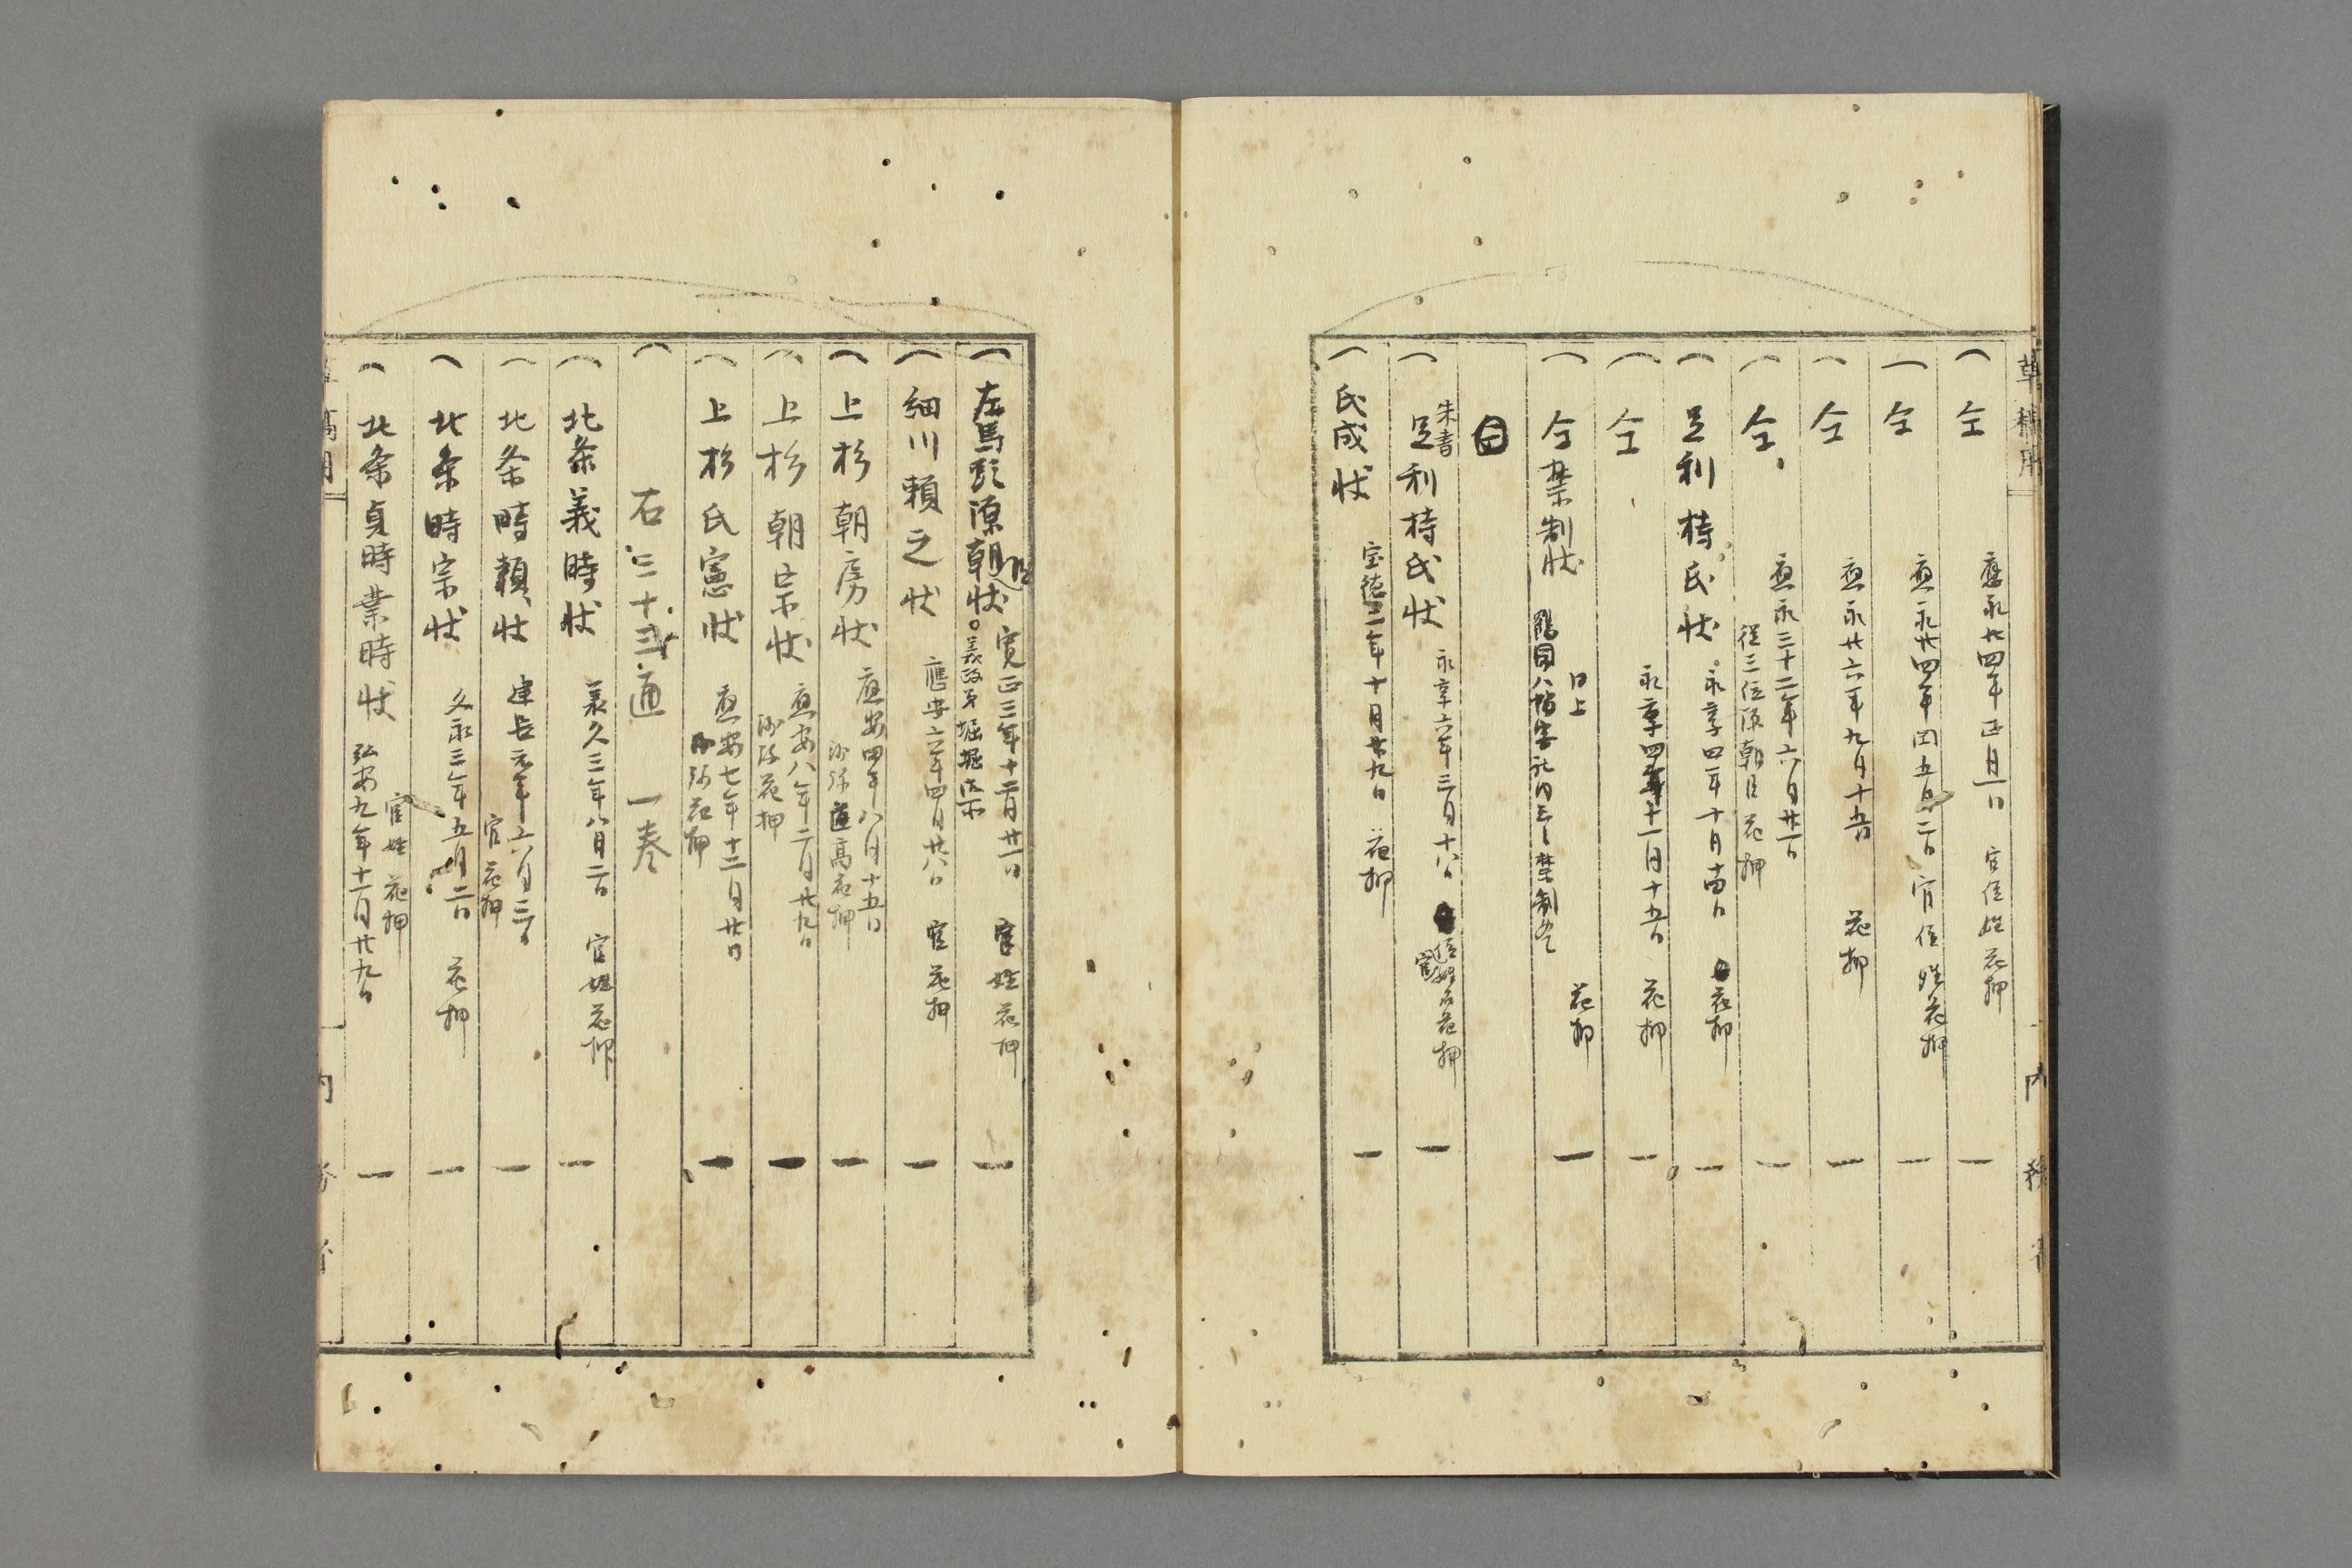 草稿用
仝 應永廿四年正月一日 官位姓花押 一
仝 應永廿四年閏五月二日 官位姓花押 一
仝 應永廿六年九月十五日 花押 一
仝 應永三十二年六月廿一日
従三位源朝臣花押 一
足利持氏状 永享四年十月十四日 花押 一
仝 永享四年十一月十五日 花押 一
仝禁制状 日上 花押 一
鶴岡八幡宮社内
朱書
足利持氏状 永享六年三月十八日 官位姓名花押 一
氏成状 宝徳三年十月廿九日 花押 一
内務省
左馬頭源朝臣状 寛正三年十二月廿一日 官姓花押 一
細川頼之状 應安六年四月廿八日 官花押 一
上杉朝房状 應安四年八月十五日
沙弥道高花押 一
上杉朝宗状 應安八年二月廿九日
沙弥花押 一
上杉氏憲状 應安七年十二月廿日
沙弥花押 一
右三十三通 一巻
北条義時状 承久三年八月二日 官姓花押 一
北条時頼状 建長元年六月三日
官花押 一
北条時宗状 文永三年五月二日 花押 一
北条貞時業時状 官姓花押
弘安九年十一月廿九日 一